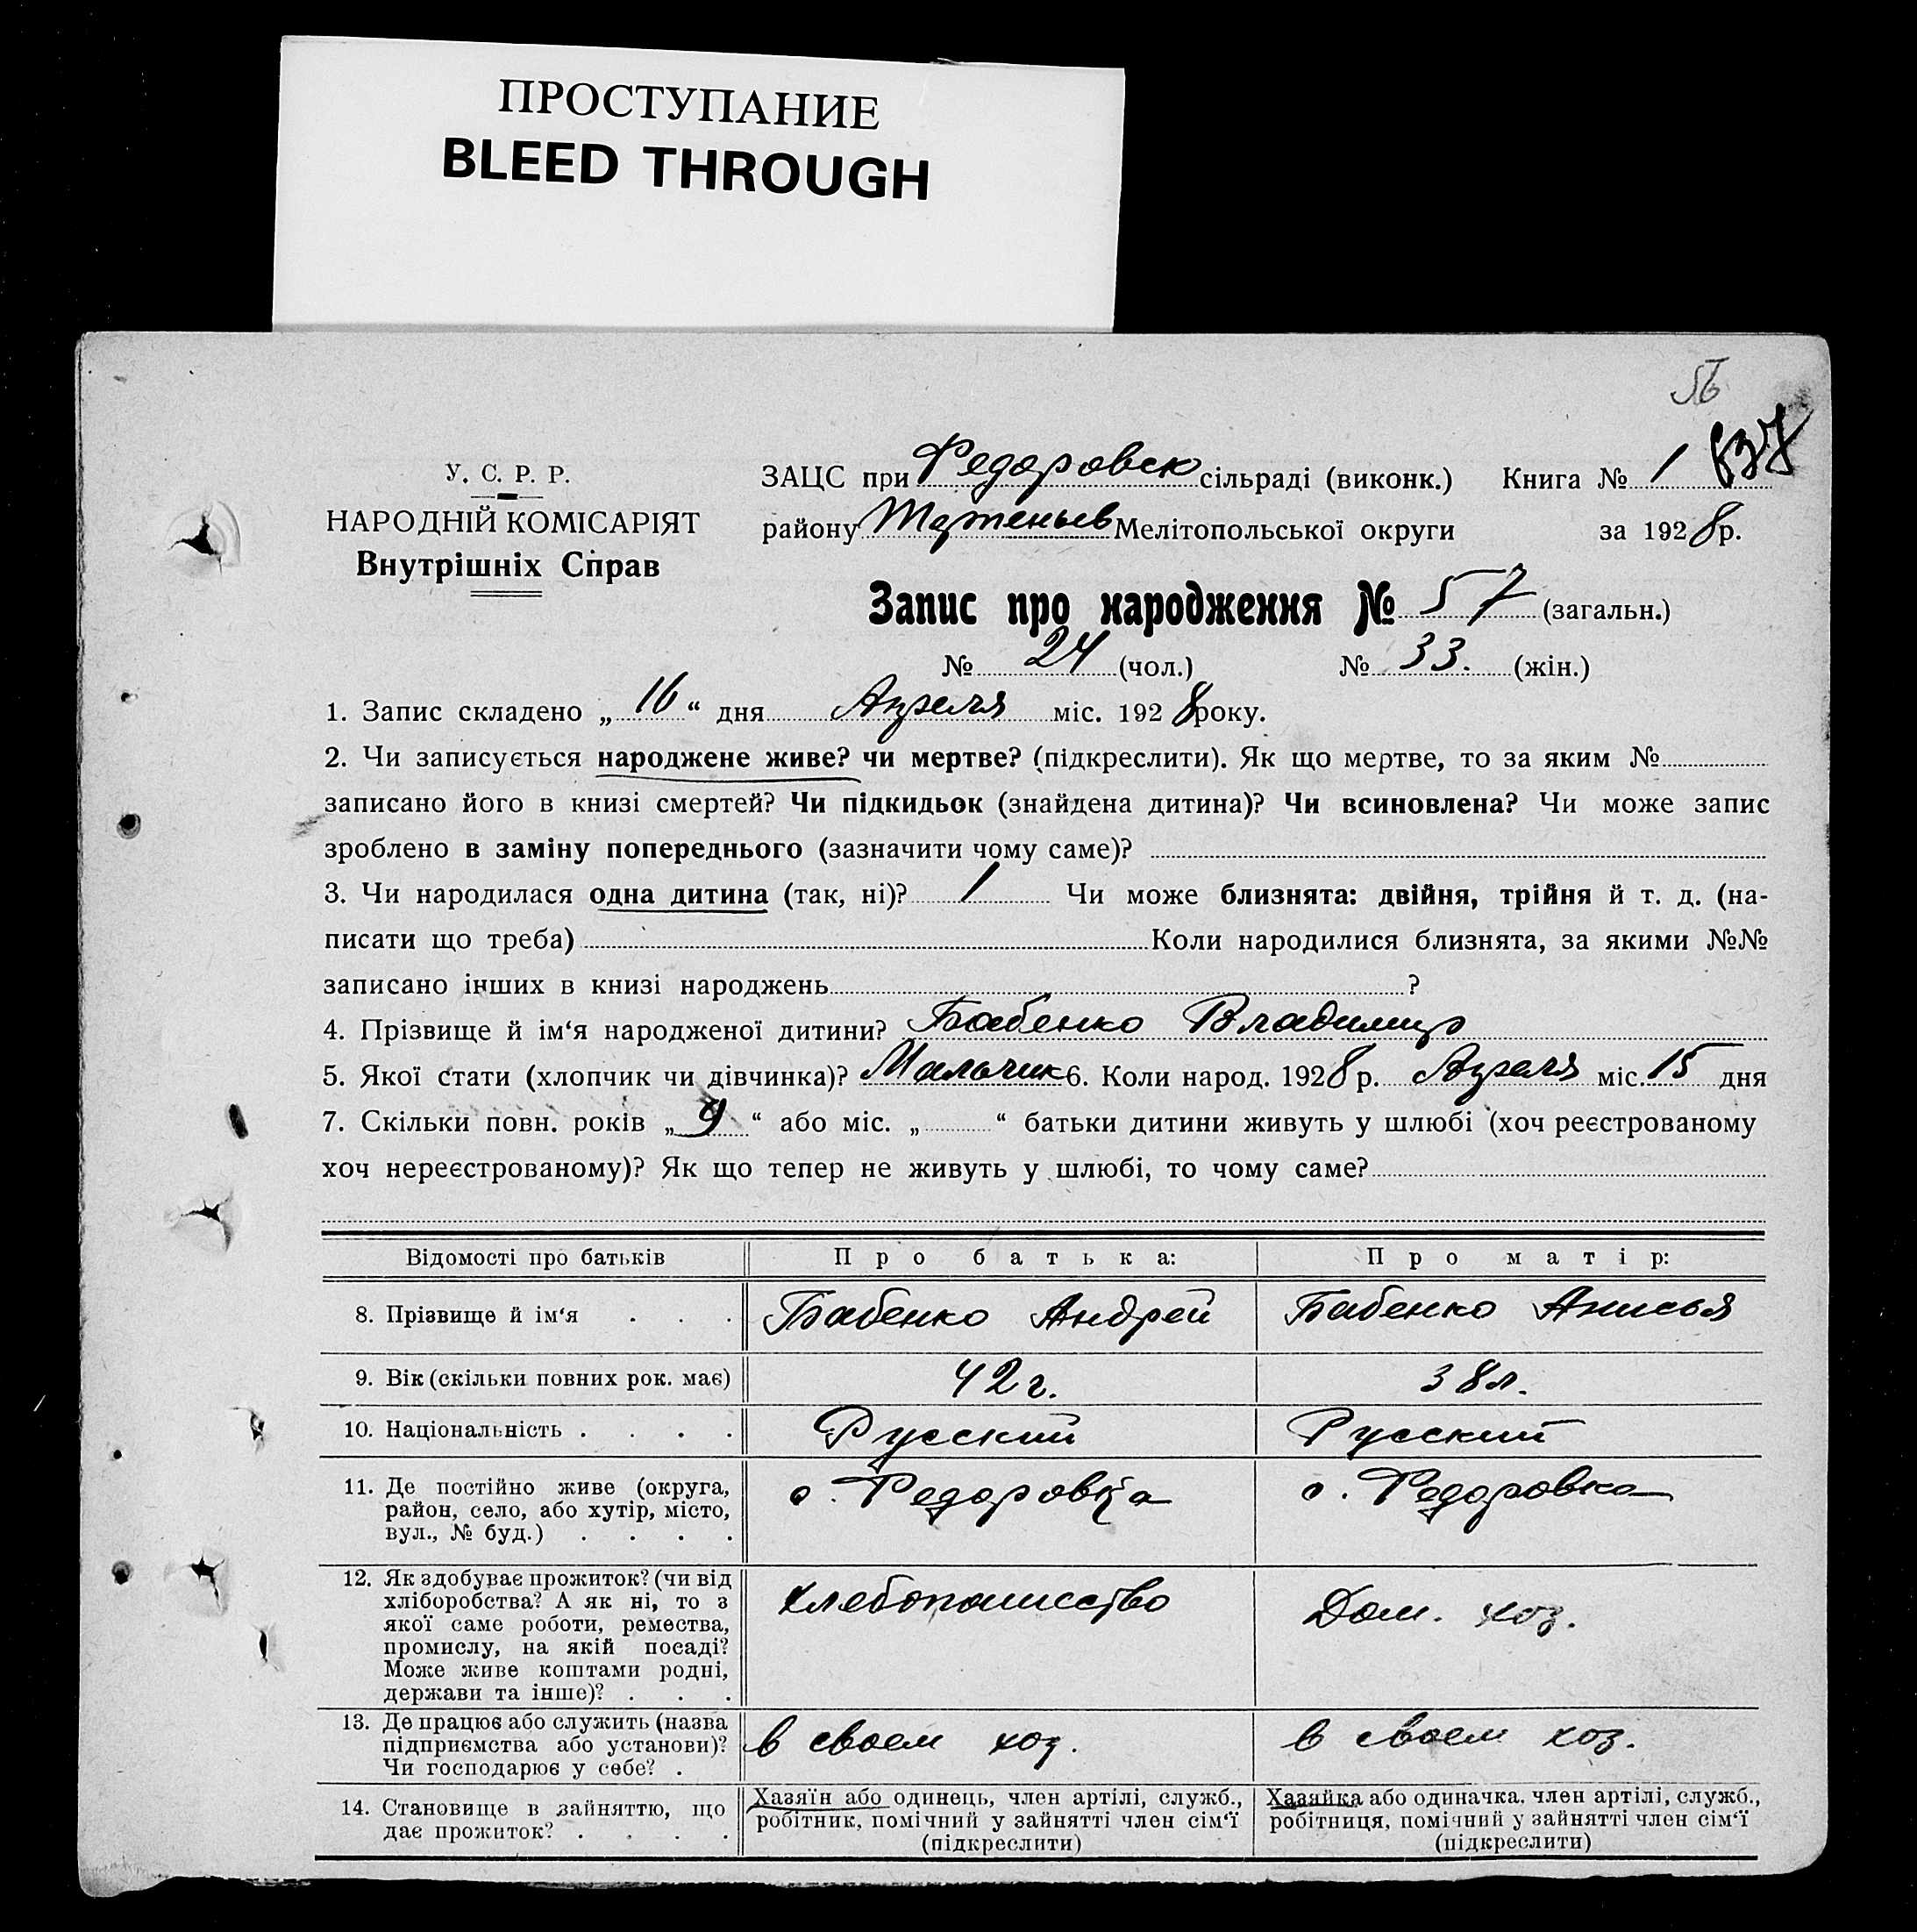 ПРОСТУПАНИЕ
BLEED THROUGH
56
837
У. С. Р. Р.
НАРОДНІЙ КОМІСАРІЯТ
Внутрішніх Справ
ЗАЦС при Федоровск сільраді (виконк.) Книга № 1
району Мелітопольської округи за 1928 р.
Запис про народження № 57 (загальн.)
№ 24 (чол.) № 33. (жін.)
1. Запис складено „ 16 “ дня Апреля міс. 1928 року.
2. Чи записується народжене живе? чи мертве? (підкреслити). Як що мертве, то за яким №
записано його в книзі смертей? Чи підкидьок (знайдена дитина)? Чи всиновлена? Чи може запис
зроблено в заміну попереднього (зазначити чому саме)?
3. Чи народилася одна дитина (так, ні)? 1 Чи може близнята: двійня, трійня й т. д. (на-
писати що треба) Коли народилися близнята, за якими №№
записано інших в книзі народжень ?
4. Прізвище й ім‘я народженої дитини? Бабенко Владимир
5. Якої стати (хлопчик чи дівчинка)? Мальчик 6. Коли народ. 1928 р. Апреля міс. 15 дня
7. Скільки повн. років „ 9 “ або міс. „ “ батьки дитини живуть у шлюбі (хоч реєстрованому
хоч нереєстрованому)? Як що тепер не живуть у шлюбі, то чому саме?
Відомості про батьків Про батька: Про матір:
8. Прізвище й ім‘я . . . Бабенко Андрей Бабенко Анисья
9. Вік (скільки повних рок. має) 42 г. 38 л.
10. Національність . . . . Русский Русский
11. Де постійно живе (округа,
район, село, або хутір, місто,
вул., № буд.) . . . .
с. Федоровка с. Федоровка
12. Як здобуває прожиток? (чи від
хліборобства? А як ні, то з
якої саме роботи, ремества,
промислу, на якій посаді?
Може живе коштами родні,
держави та інше)? . . .
хлебопашество Дом. хоз.
13. Де працює або служить (назва
підприємства або установи)?
Чи господарює у себе? .
в своем хоз. в своем хоз.
14. Становище в зайняттю, що
дає прожиток? . . . .
Хазяїн або одинець, член артілі, служб.,
робітник, помічний у зайнятті член сім‘ї
(підкреслити)
Хазяйка або одиначка, член артілі, служб.,
робітниця, помічний у зайнятті член сім‘ї
(підкреслити)